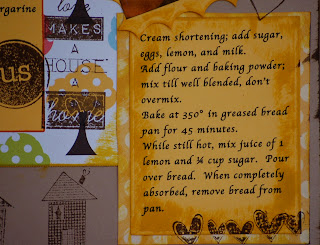 rgarine
love
MAKES
A
HOUSE
A
home
us
Cream shortening; add sugar,
eggs, lemon, and milk.
Add flour and baking powder;
mix till well blended, don't
overmix.
Bake at 350° in greased bread
pan for 45 minutes.
While still hot, mix juice of 1
lemon and ¾ cup sugar. Pour
over bread. When completely
absorbed, remove bread from
pan.